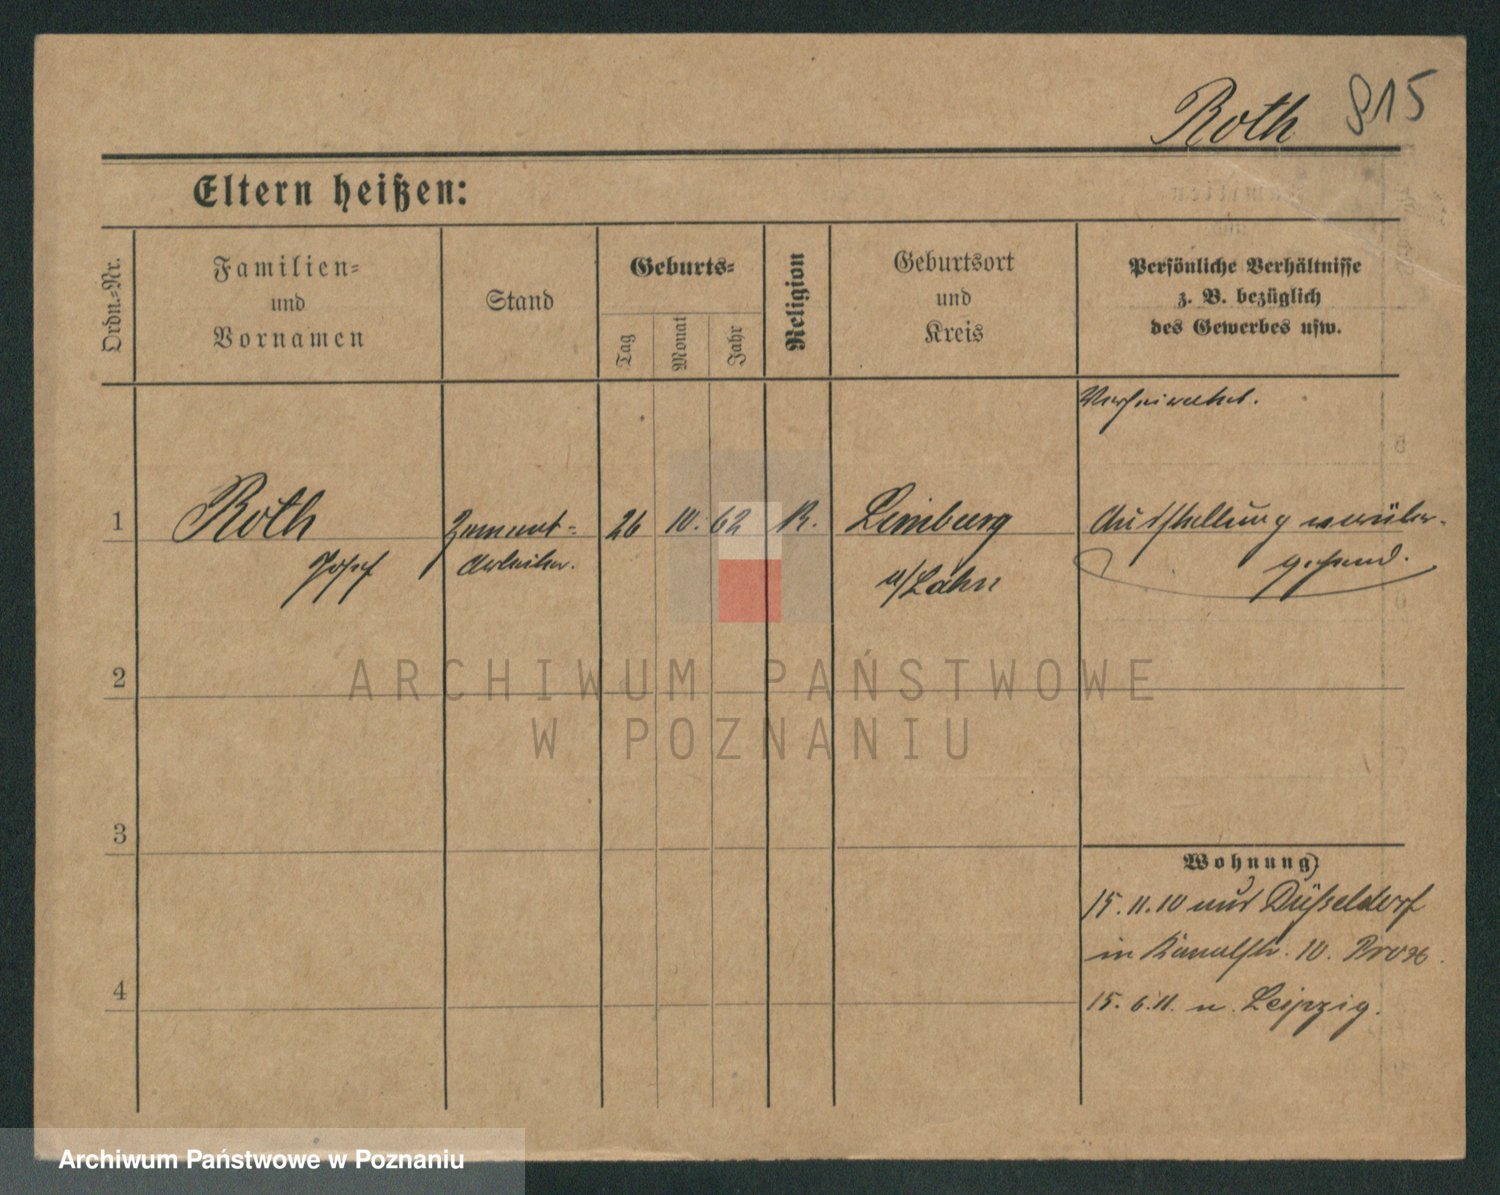 Roth 815
Eltern heißen:
Ordn.-Nr.
Familien-
und
Vornamen
Stand
Geburts-
Tag
Monat
Jahr
Religion
Geburtsort
und
Kreis
Persönliche Verhältnisse
z. B. bezüglich
des Gewerbes usw.
Verheiratet.
1 Roth Zement- 26 10. 62 K. Limburg Ausstellung vorüber-
Josef Arbeiter. a/Lahn gehend.
2
3
4
Wohnung
15.11.10 aus Düsseldorf
in Kanalstr. 10.
15.6.11. n. Leipzig.
ARCHIWUM PAŃSTWOWE
W POZNANIU
Archiwum Państwowe w Poznaniu